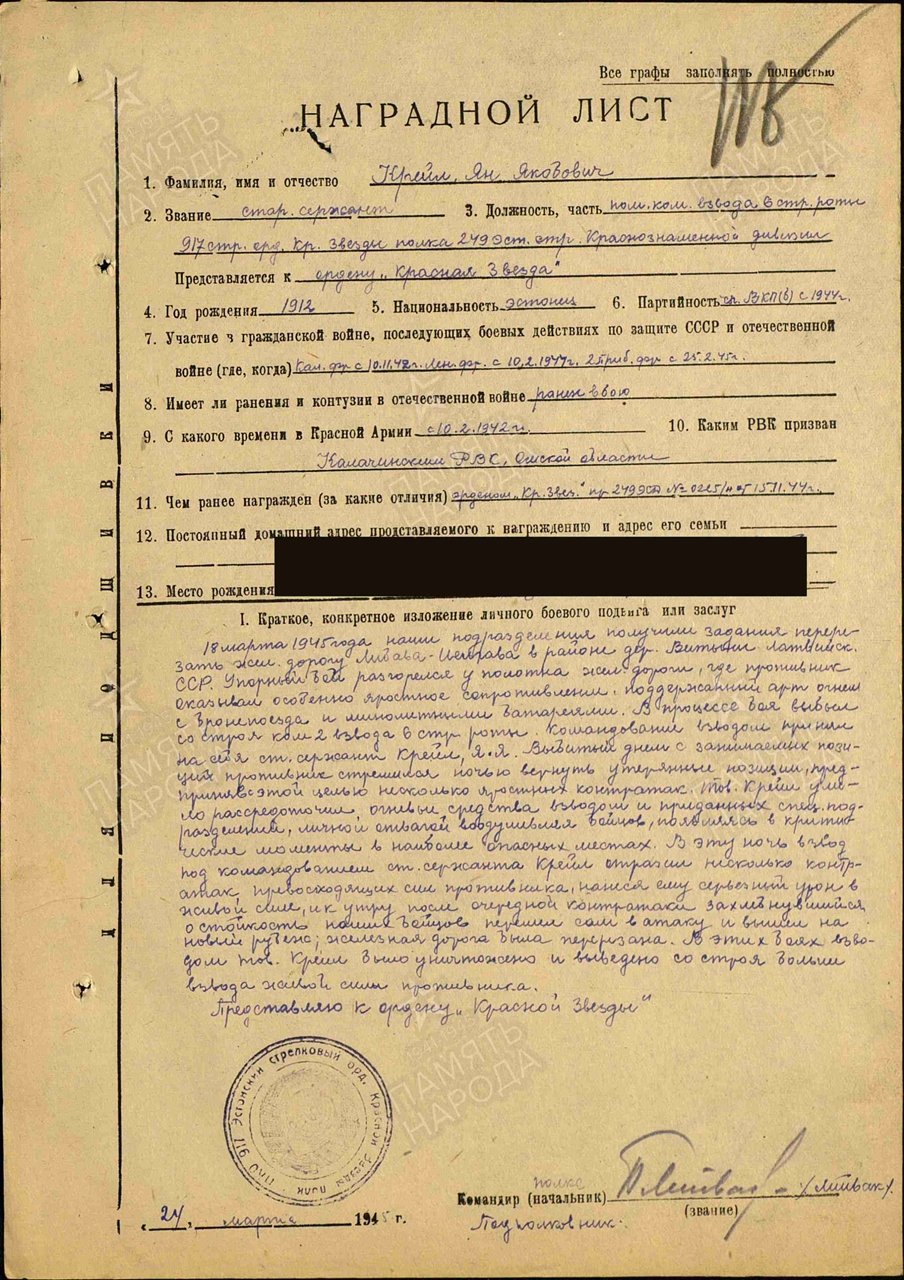 Все графы заполнять полностью
НАГРАДНОЙ ЛИСТ
1. Фамилия, имя и отчество Крейл, Ян Якобович
2. Звание стар. сержант 3. Должность, часть пом. ком. взвода 6 стр. роты
917 стр. орд. Кр. Звезды полка 249 Эст. стр. Краснознаменной дивизии
Представляется к ордену „Красная Звезда"
4. Год рождения 1912 5. Национальность эстонец 6. Партийность чл. ВКП(б) с 1944г.
7. Участие в гражданской войне, последующих боевых действиях по защите СССР и отечественной
войне (где, когда) Кал. фр с 10.11.42г. Лен. фр. с 10.2.1944г. 2 Приб. фр с 25.2.45г.
8. Имеет ли ранения и контузии в отечественной войне ранен в бою
9. С какого времени в Красной Армии с 10.2.1942 г. 10. Каким РВК призван
Калачинским РВК, Омской области
11. Чем ранее награжден (за какие отличия) орденом „Кр. Звез." пр 249 ЭСД №
12. Постоянный домашний адрес представляемого к награждению и адрес его семьи
13. Место рождения
I. Краткое, конкретное изложение личного боевого подвига или заслуг
18 марта 1945 года наши подразделения получили задания перере-
зать жел. дорогу Либава- в районе дер. Витыни Латвийск.
ССР. Упорный бой разгорелся у полотна жел. дороги, где противник
оказывал особенно яростное сопротивление, поддержанный арт огнем
с бронепоезда и минометными батареями. В процессе боя выбыл
со строя ком 2 взвода 6 стр. роты. Командование взводом принял
на себя ст. сержант Крейл, Я.Я. Выбитый днем с занимаемых пози-
ций противник стремился ночью вернуть утерянные позиции, пред-
приняв с этой целью несколько яростных контратак. Тов. Крейл уме-
ло рассредоточил, огневые средства взводом и приданных спец. под-
разделений, личной отвагой воодушевляя бойцов, появляясь в крити-
ческие моменты в наиболее опасных местах. В эту ночь взвод
под командованием ст. сержанта Крейл отразил несколько контр-
атак, превосходящих сил противника, нанеся ему серьезный урон в
живой силе, и к утру после очередной контратаки захлебнувшийся
о стойкость наших бойцов перешел сам в атаку и вышел на
новый рубеж; железная дорога была перерезана. В этих боях взво-
дом тов. Крейл было уничтожено и выведено со строя больше
взвода живой силы противника.
Представляю к ордену „Красной Звезды"
917 Эстонский стрелковый орд. Красной Звезды полк
полка
Командир (начальник) /Литвак/
(звание)
Подполковник.
„24„ марта 1945 г.
ДЛЯ ПОДШИВКИ
ПАМЯТЬ НАРОДА